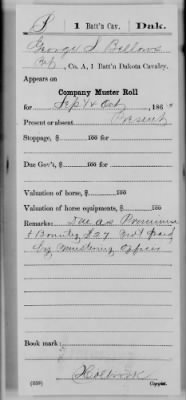 1 Batt'n Cav. Dak.
George S Bellows
, Co. A, 1 Batt'n Dakota Cavalry.
Appears on
Company Muster Roll
for Sept & Oct, 186
Present or absent Present
Stoppage, $ 100 for
Due Gov't, $ 100 for
Valuation of horse, $ 100
Valuation of horse equipments, $ 100
Remarks: Due as Premium
& Bounty $27 Not paid
by Mustering Officer
Book mark:
Holbrook
(359) Copyist.